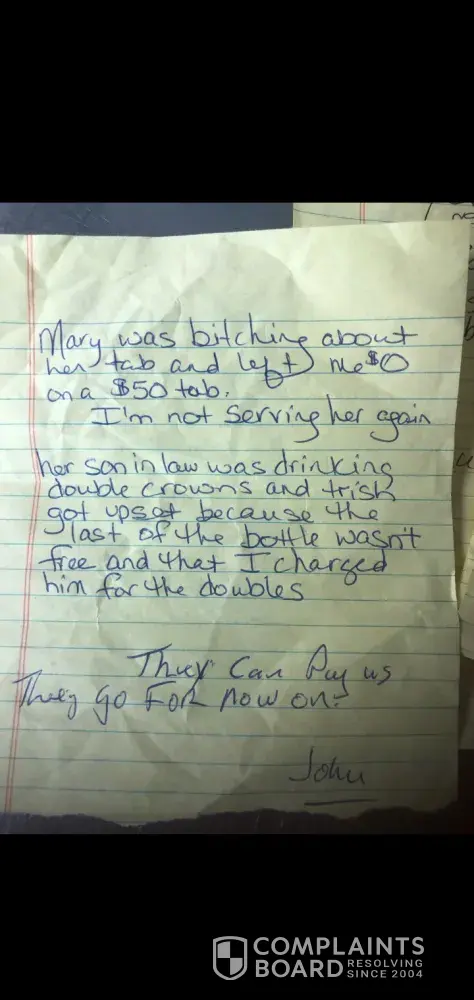 Mary was bitching about
her tab and left me $0
on a $50 tab.
I'm not serving her again
her son in law was drinking
double crowns and trish
got upset because the
last of the bottle wasn't
free and that I charged
him for the doubles
They Can Pay us
They Go For now on.
John
COMPLAINTS
BOARD
RESOLVING
SINCE 2004